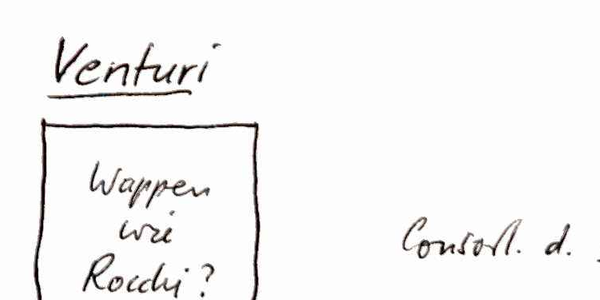 Venturi
Wappen
wie
Rocchi?
Consort. d.